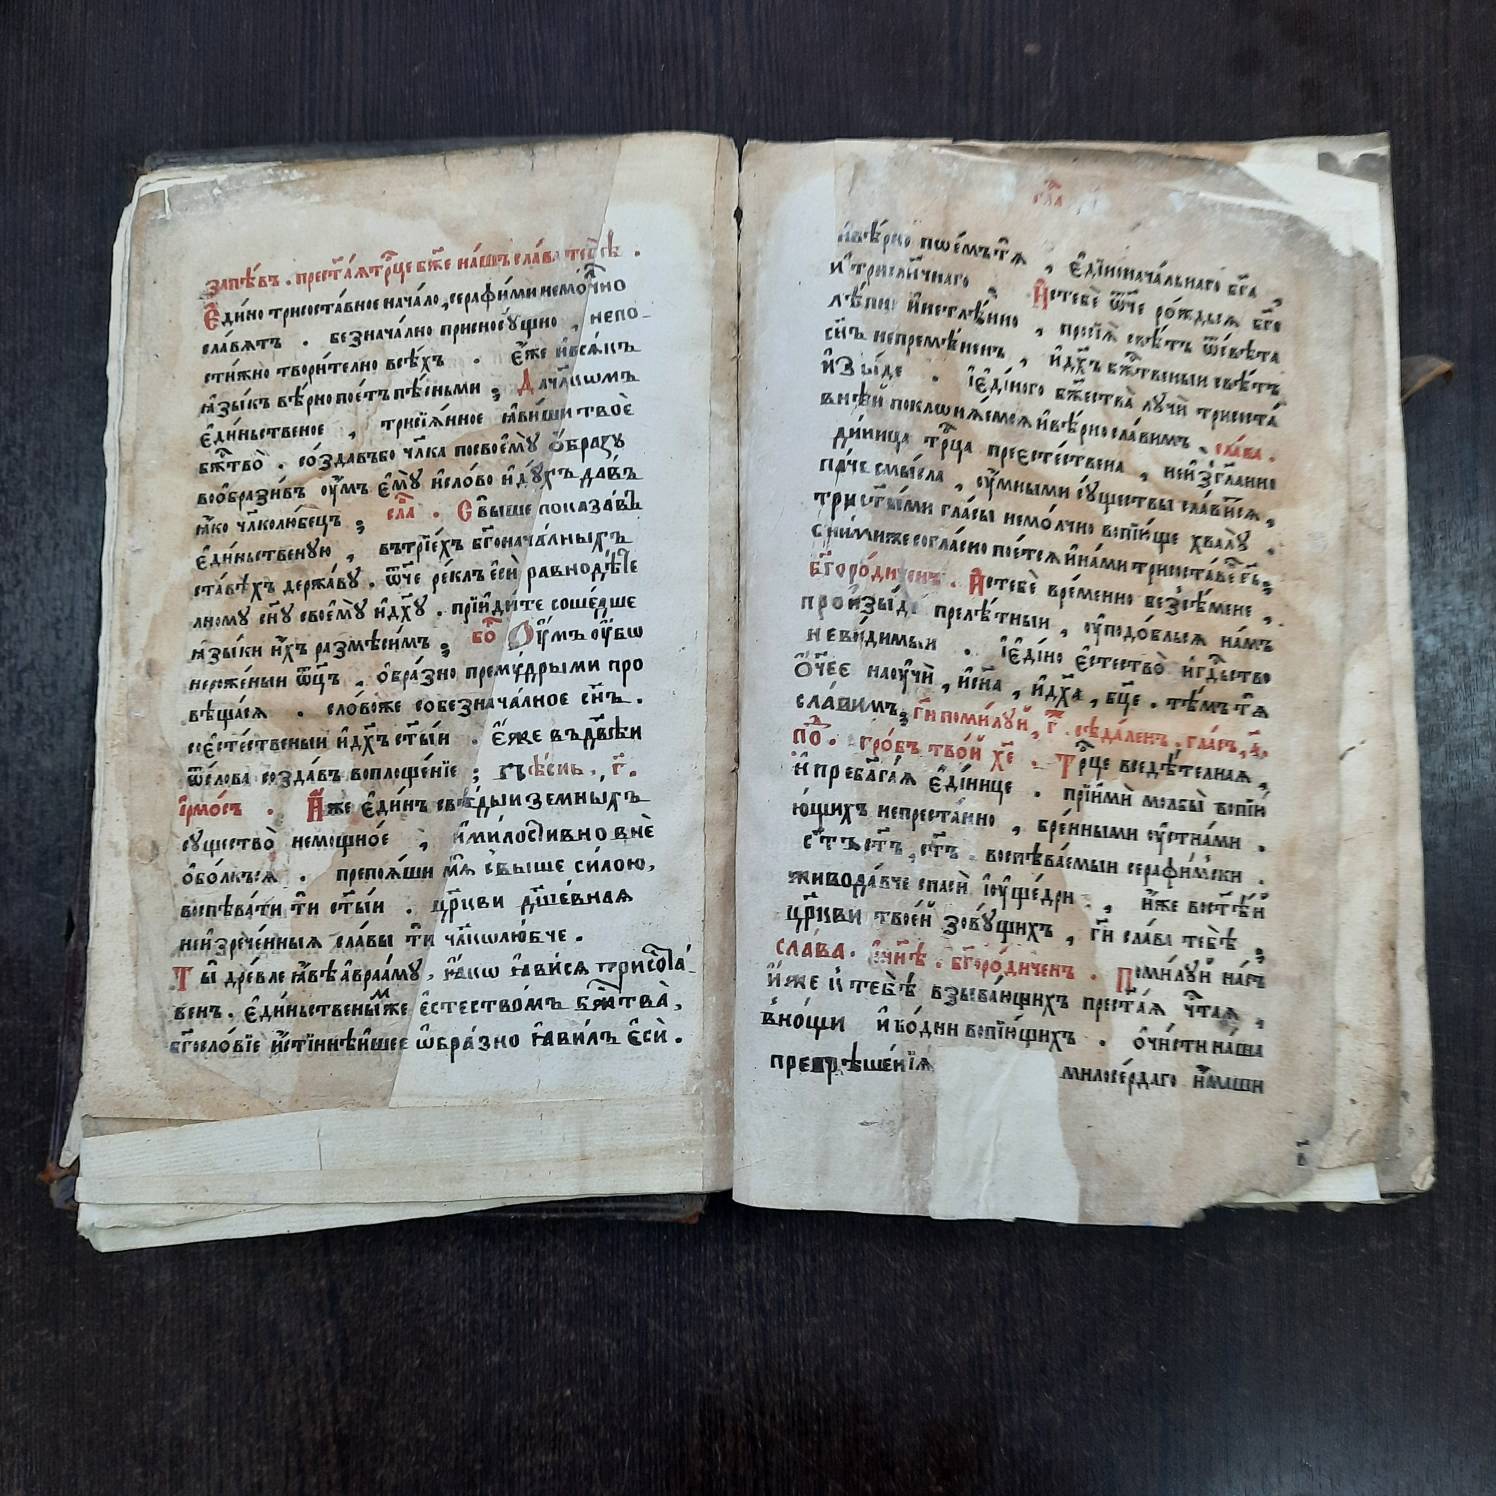 запѣ́въ. прест҃а́ѧ трⷪ҇це бж҃е на́шъ сла́ва тебѣ̀.
Е҆ди́но трисоста́вное нача́ло, серафи́ми немо́лчно
сла́вѧтъ. безнача́лно присносꙋ́щно, непо-
сти́жно твори́телно всѣ́хъ. є҆́же и҆ всѧ́къ
ѩ҆зы́къ вѣ́рно пое́тъ пѣ́сньми; Да чл҃кѡмъ
є҆ди́ньственое, трисїѧ́нное ꙗ҆ви́ши твоѐ
бж҃тво̀. созда́въ бо чл҃ка по своемꙋ̀ ѻ҆́бразꙋ
воѻбрази́въ ᲂу҆́мъ є҆мꙋ̀ и҆ сло́во и҆ дꙋ́хъ да́въ
ꙗ҆́ко чл҃колю́бецъ; сла҃. Свы́ше показа́въ
є҆ди́ньственꙋю, въ трїе́хъ бг҃онача́лныхъ
ста́вѣхъ держа́вꙋ. ѿч҃е ре́клъ є҆сѝ равнодѣ́те
лномꙋ сн҃ꙋ своемꙋ̀ и҆ дх҃ꙋ. прїиди́те соше́дше
ѩ҆зы́ки и҆́хъ размѣси́мъ; бо҃ ᲂу҆́мъ ᲂу҆́бѡ
нероже́ныи ѿц҃ъ, ѻ҆бра́зно премꙋ́дрыми про
вѣща́сѧ. сло́во же собезнача́лное сн҃ъ.
и҆ є҆сте́ственыи и҆ дх҃ъ ст҃ы́и. є҆́же въ дв҃ѣ́и
ѿ сло́ва созда́въ воплоще́нїе; пѣ́снь, г҃.
і҆рмо́съ. И҆́же є҆ди́нъ свѣ́дыи земны́хъ
сꙋщество̀ немощно́е, и҆ ми́лостивно в нѐ
ѻ҆бо́лкъсѧ. препоѧ́ши мѧ̀ свы́ше си́лою,
воспѣва́ти ти̑ ст҃ы́и. цр҃кви дш҃е́внаѧ
неизрече́нныѧ сла́вы ти̑ чл҃колю́бче.
Ты̀ дре́вле ꙗ҆́вѣ а҆враа́мꙋ, ꙗ҆́кѡ ꙗ҆ви́сѧ трисоста́-
венъ. є҆ди́ньственымже є҆стество́мъ бж҃тва̀,
бг҃осло́вїе и҆́стиннѣишее ѡ҆бра́зно ꙗ҆ви́лъ є҆сѝ.
гла҃
и҆ вѣ́рно пое́мъ тѧ̑, є҆диноначалнаго бг҃а,
и҆ трисл҃нчнаго, И҆с тебѐ ѿч҃е ро́ждьсѧ бг҃о
лѣ́пно и҆ нетлѣ́нно, просїѧ̀ свѣ́тъ ѿ свѣ́та
сн҃ъ непремѣ́ненъ, и҆ дх҃ъ бж҃твеныи свѣ́тъ
и҆зы́де. і҆ є҆ди́ного бж҃ества̀ лꙋчѝ трисоста́
внѣ́й покланѧ́емсѧ и҆ вѣ́рно сла́вимъ, сла́ва.
ди́ница трⷪ҇ца преєсте́ствена, неизгл҃анно
па́че смы́сла, ᲂу҆́мными сꙋществы сла́витсѧ,
трист҃ы́ми гла́сы немо́лчно вопїю́ще хвалꙋ̀.
с ни́миже согла́сно пое́тсѧ и҆ на́ми трисоста́ве гь҃;
бг҃оро́диченъ. И҆с тебѐ вре́менно без̾сѣ́мене,
произы́де прелѣ́тныи, ᲂу҆подо́блься на́мъ
неви́димыи. і҆ є҆ди́но є҆стество̀ и҆ гд҃ьство
ѻ҆́ч҃ее наᲂучѝ, и҆ сн҃а, и҆ дх҃а, бц҃е. тѣ́мъ тѧ̀
сла́вимъ; гдⷭ҇и поми́лꙋй, г҃. сѣда́ленъ. гла́съ, а҃.
по҃. гро́бъ тво́й хе҃. Трⷪ҇це вседѣ́телнаѧ,
и҆ пребл҃га́ѧ є҆ди́нице. прїимѝ молбы̀ вопїю́
ющихъ непреста́нно, бре́нными ᲂу҆стна́ми.
ст҃ъ ст҃ъ, ст҃ъ. воспѣва́емыи серафи́мски.
живода́вче спасѝ і҆ ᲂу҆ще́дри, и҆́же во ст҃ѣ́й
цр҃кви твое́й зовꙋ́щихъ, гдⷭ҇и сла́ва тебѣ̀;
сла́ва. и҆ нн҃ѣ. бг҃оро́диченъ. Поми́лꙋй на́съ
и҆́же к тебѣ̀ взыва́ющихъ прест҃а́ѧ чⷭ҇таѧ,
в нощѝ и҆ во днѝ вопїю́щихъ. ѻ҆чи́сти на́ша
прегрѣше́нїѧ милосе́рдаго и҆́маши